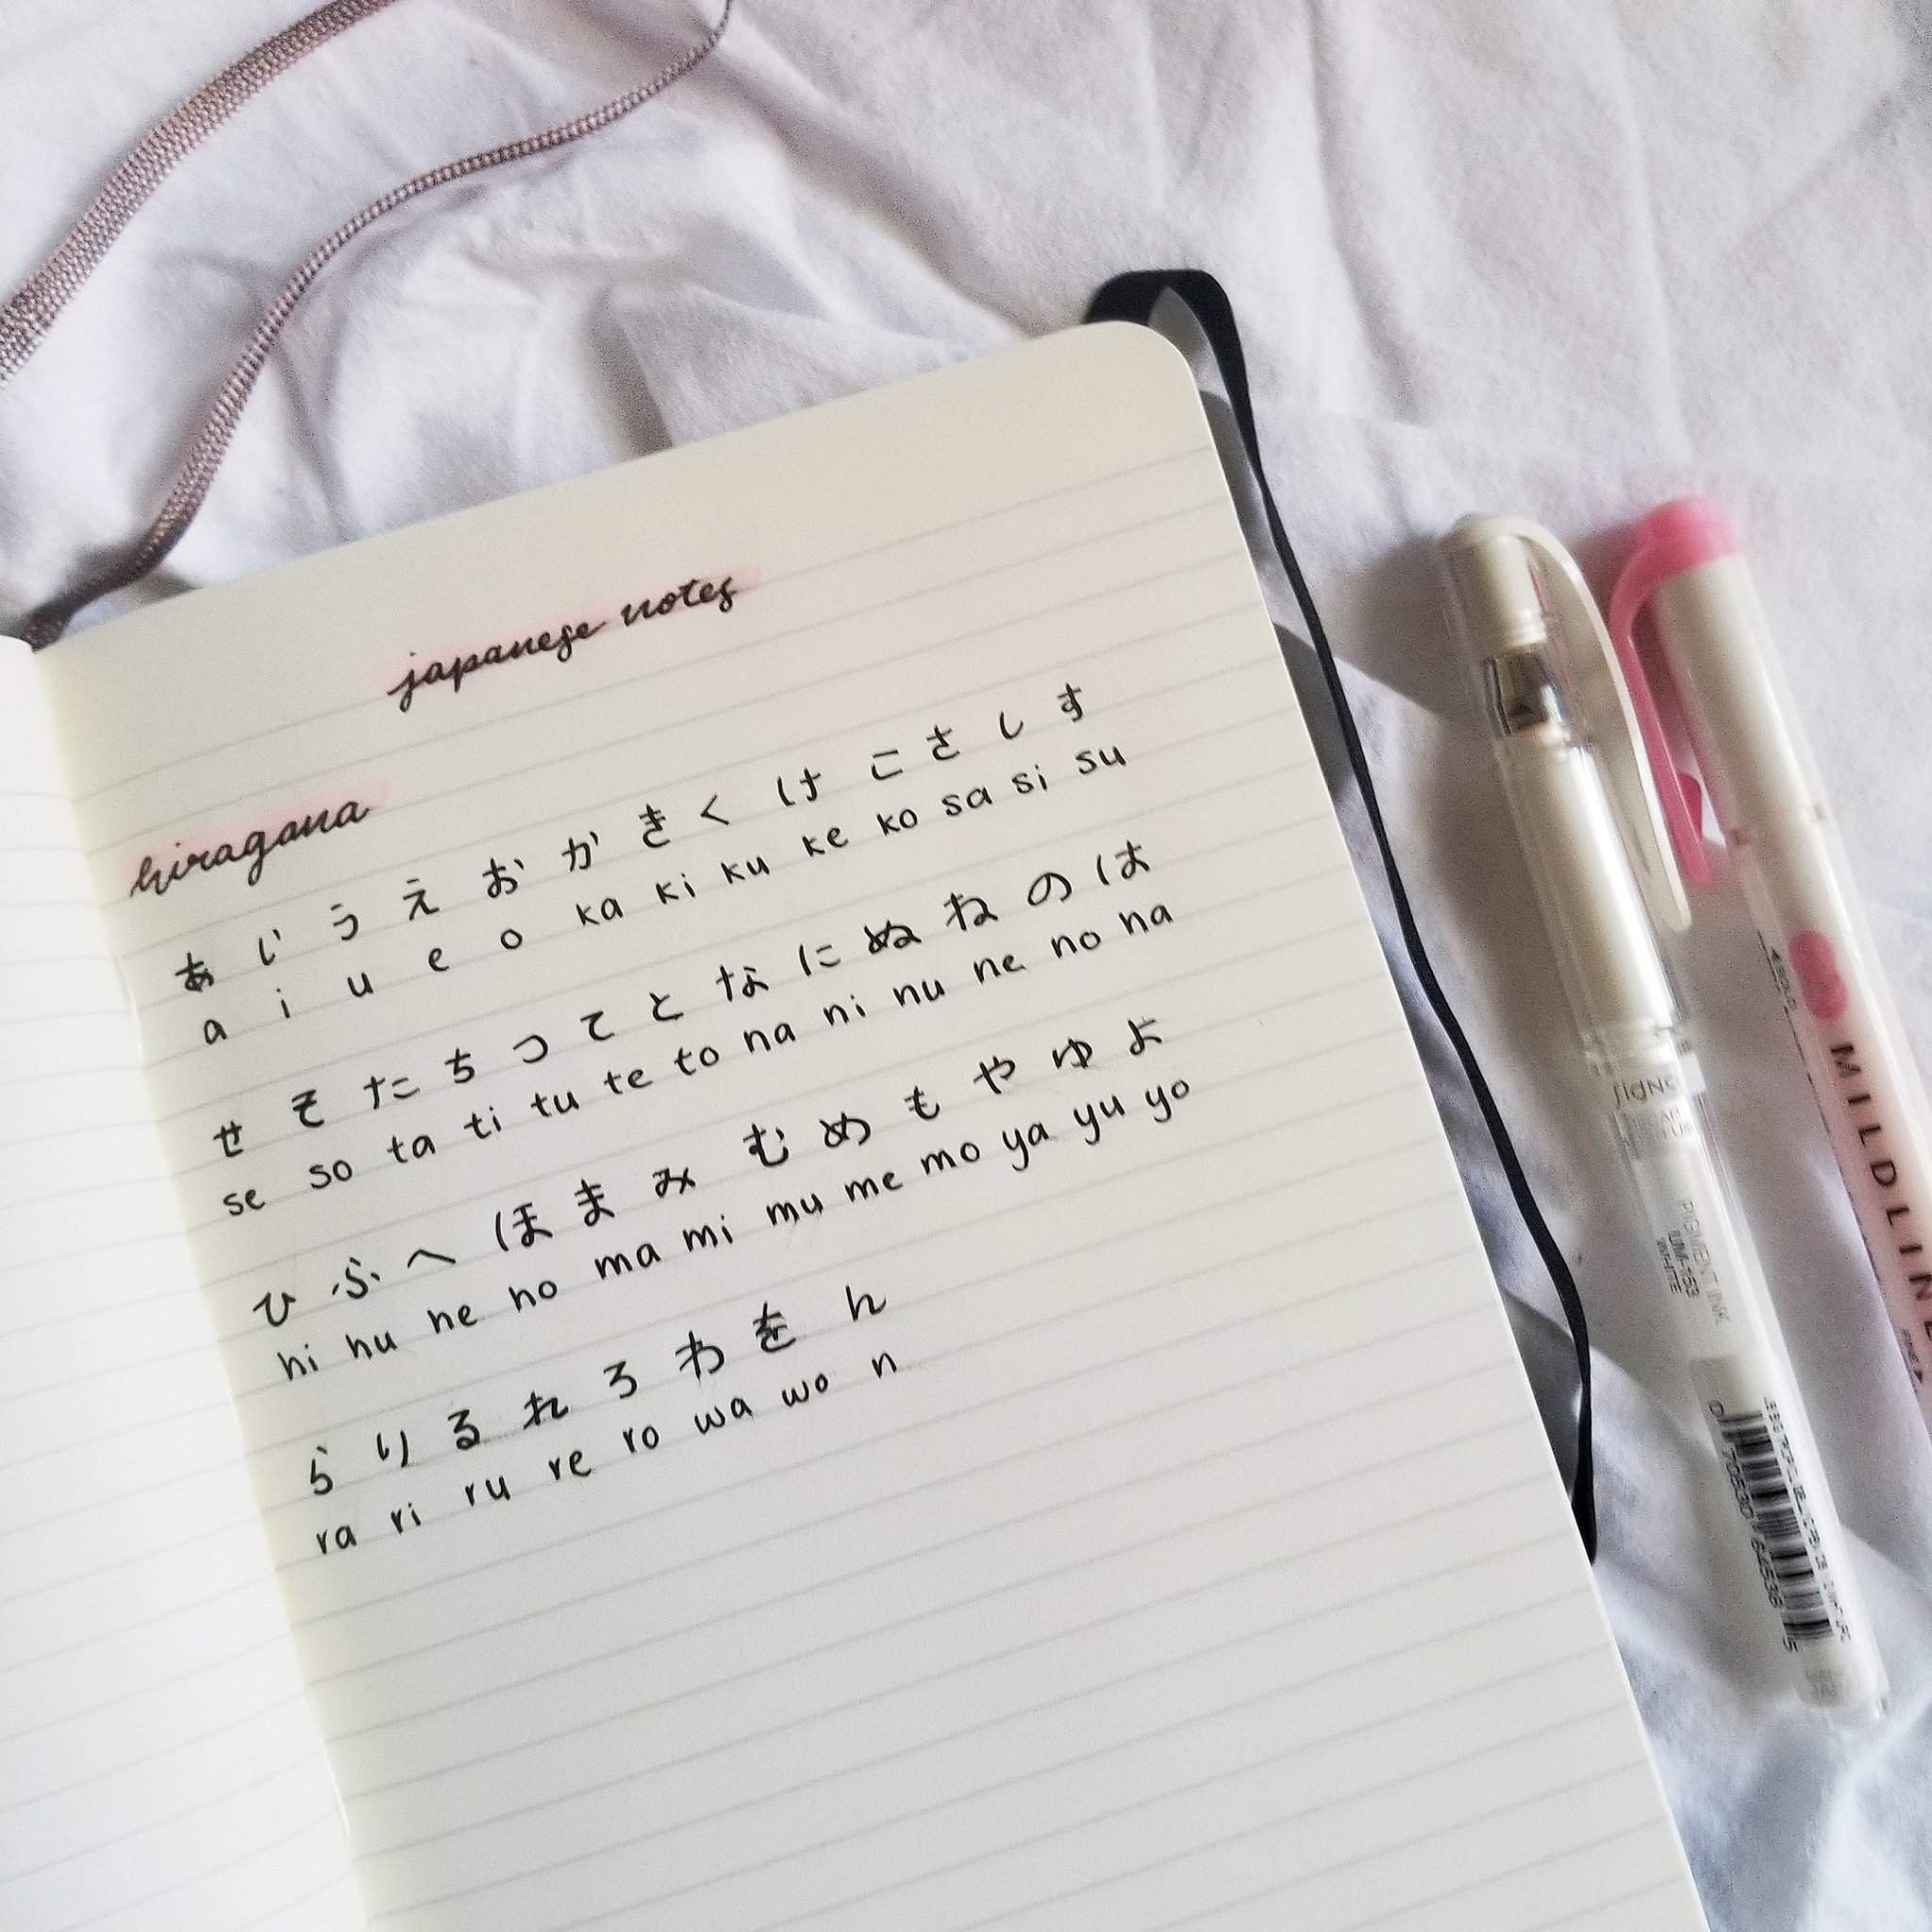 japanese notes
hiragana
あ い う え お か き く け こ さ し す
a i u e o ka ki ku ke ko sa si su
せ そ た ち つ て と な に ぬ ね の は
se so ta ti tu te to na ni nu ne no ha
ひ ふ へ ほ ま み む め も や ゆ よ
hi hu he ho ma mi mu me mo ya yu yo
ら り る れ ろ わ を ん
ra ri ru re ro wa wo n
signo
PIGMENT INK
UM-153
WHITE
MILDLINE